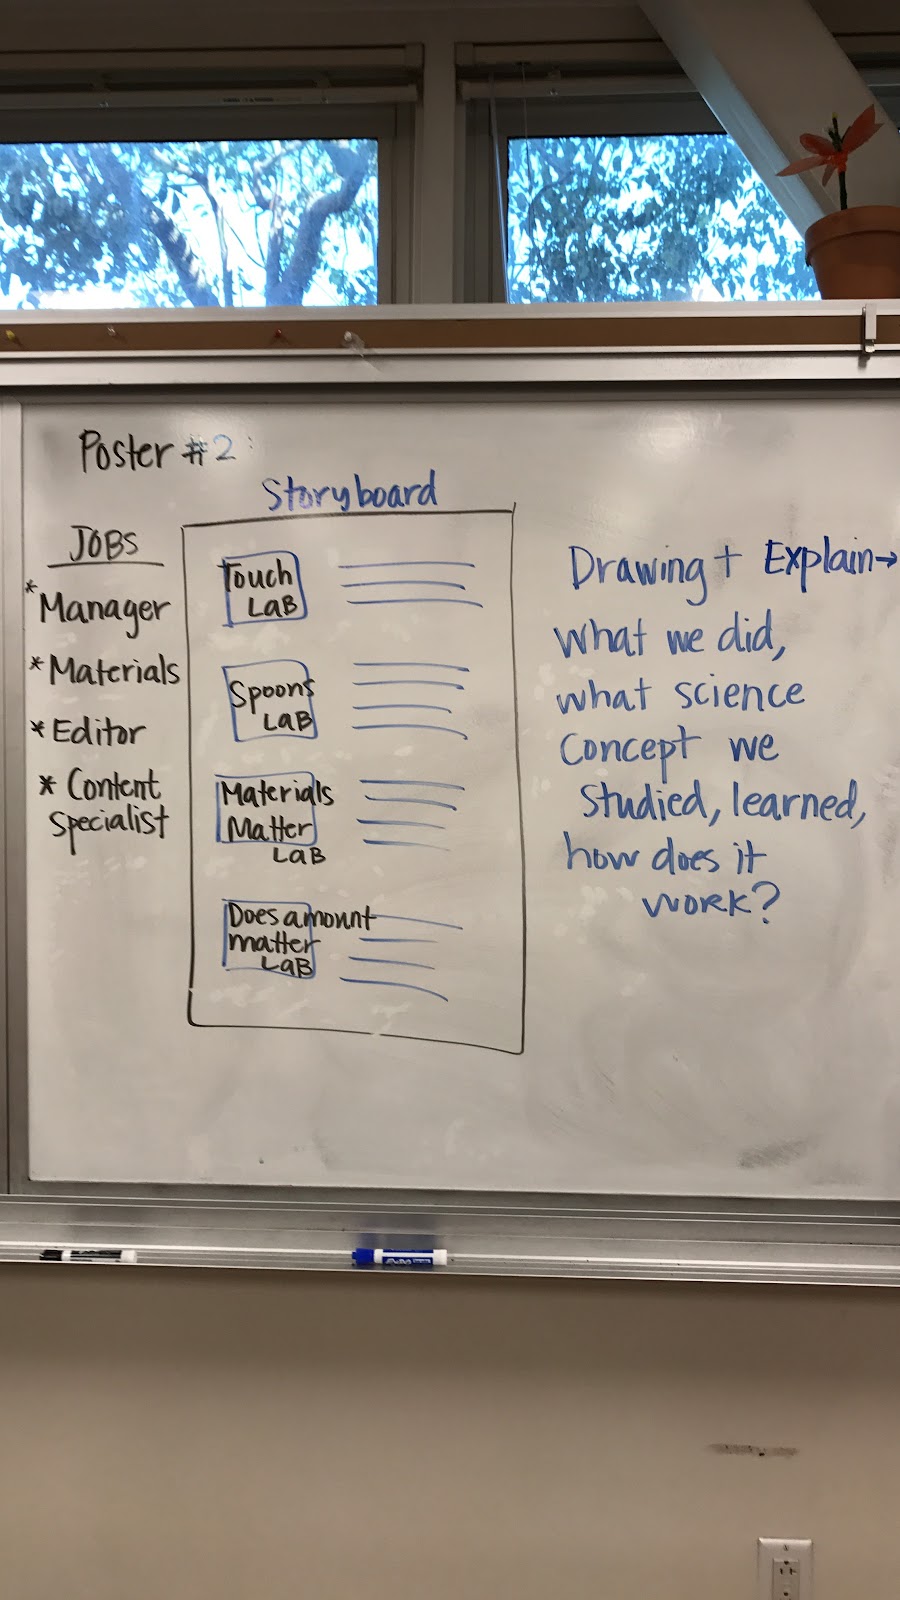 Poster #2:
Storyboard
JOBS
* Manager
* Materials
* Editor
* Content
Specialist
Touch
LAB
Spoons
LAB
Materials
Matter
LAB
Does amount
matter
LAB
Drawing + Explain→
What we did,
what science
concept we
studied, learned,
how does it
work?